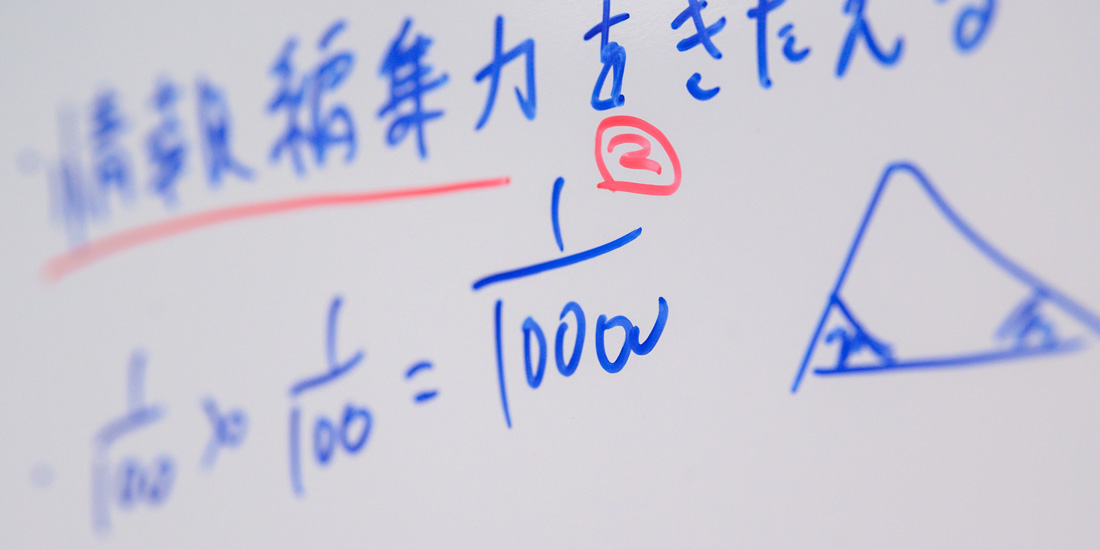 ・情報編集力をきたえる
②
・1/100 × 1/100 = 1/10000